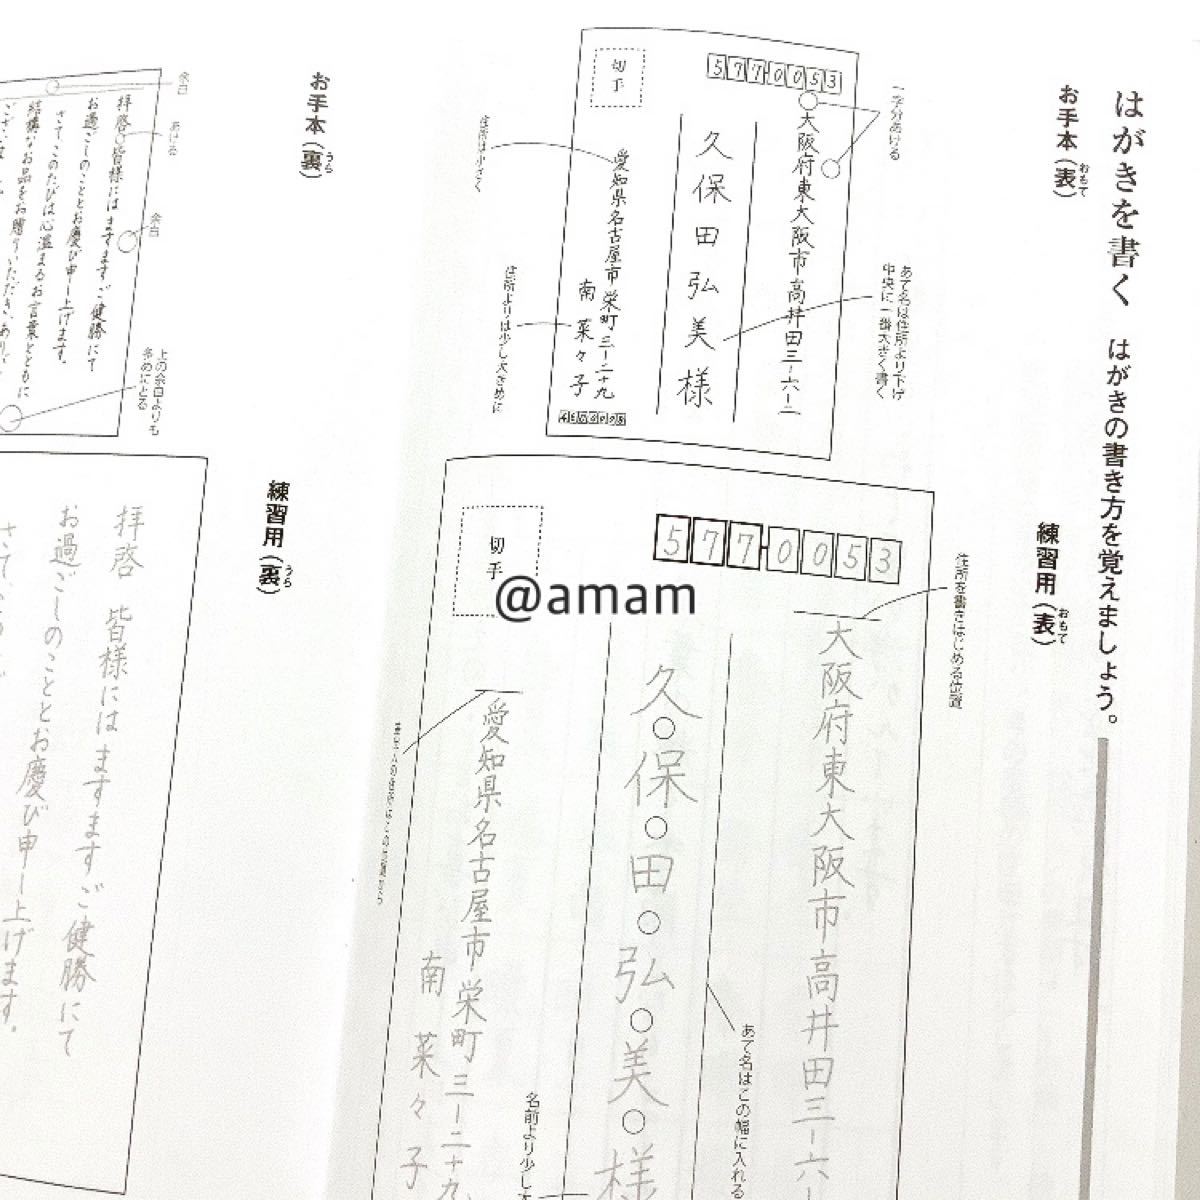 はがきを書く
はがきの書き方を覚えましょう。
お手本（表）
おもて
577-0053
切手
一字分あける
大阪府東大阪市高井田三-六-二
あて名は住所より下げ
中央に一番大きく書く
久保田弘美様
愛知県名古屋市栄町三-二十九
南菜々子
住所は小さく
住所よりは少し大きめに
練習用（表）
おもて
577-0053
切手
住所を書きはじめる位置
大阪府東大阪市高井田三-六-
あて名はこの幅に入れる
久保田弘美様
名前より少し大
愛知県名古屋市栄町三-二十九
南菜々子
@amam
お手本（裏）
うら
余白
あける
余白
上の余白よりも
多めにとる
拝啓 皆様にはますますご健勝にて
お過ごしのこととお慶び申し上げます。
さてこのたびは心温まるお言葉とともに
結構なお品をお贈りいただき、あり
練習用（裏）
うら
拝啓 皆様にはますますご健勝にて
お過ごしのこととお慶び申し上げます。